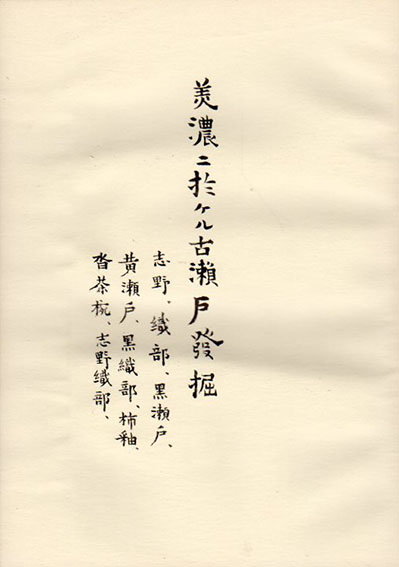 美濃ニ於ケル古瀬戸發掘
志野、織部、黒瀬戸、
黄瀬戸、黒織部、柿釉、
沓茶椀、志野織部、